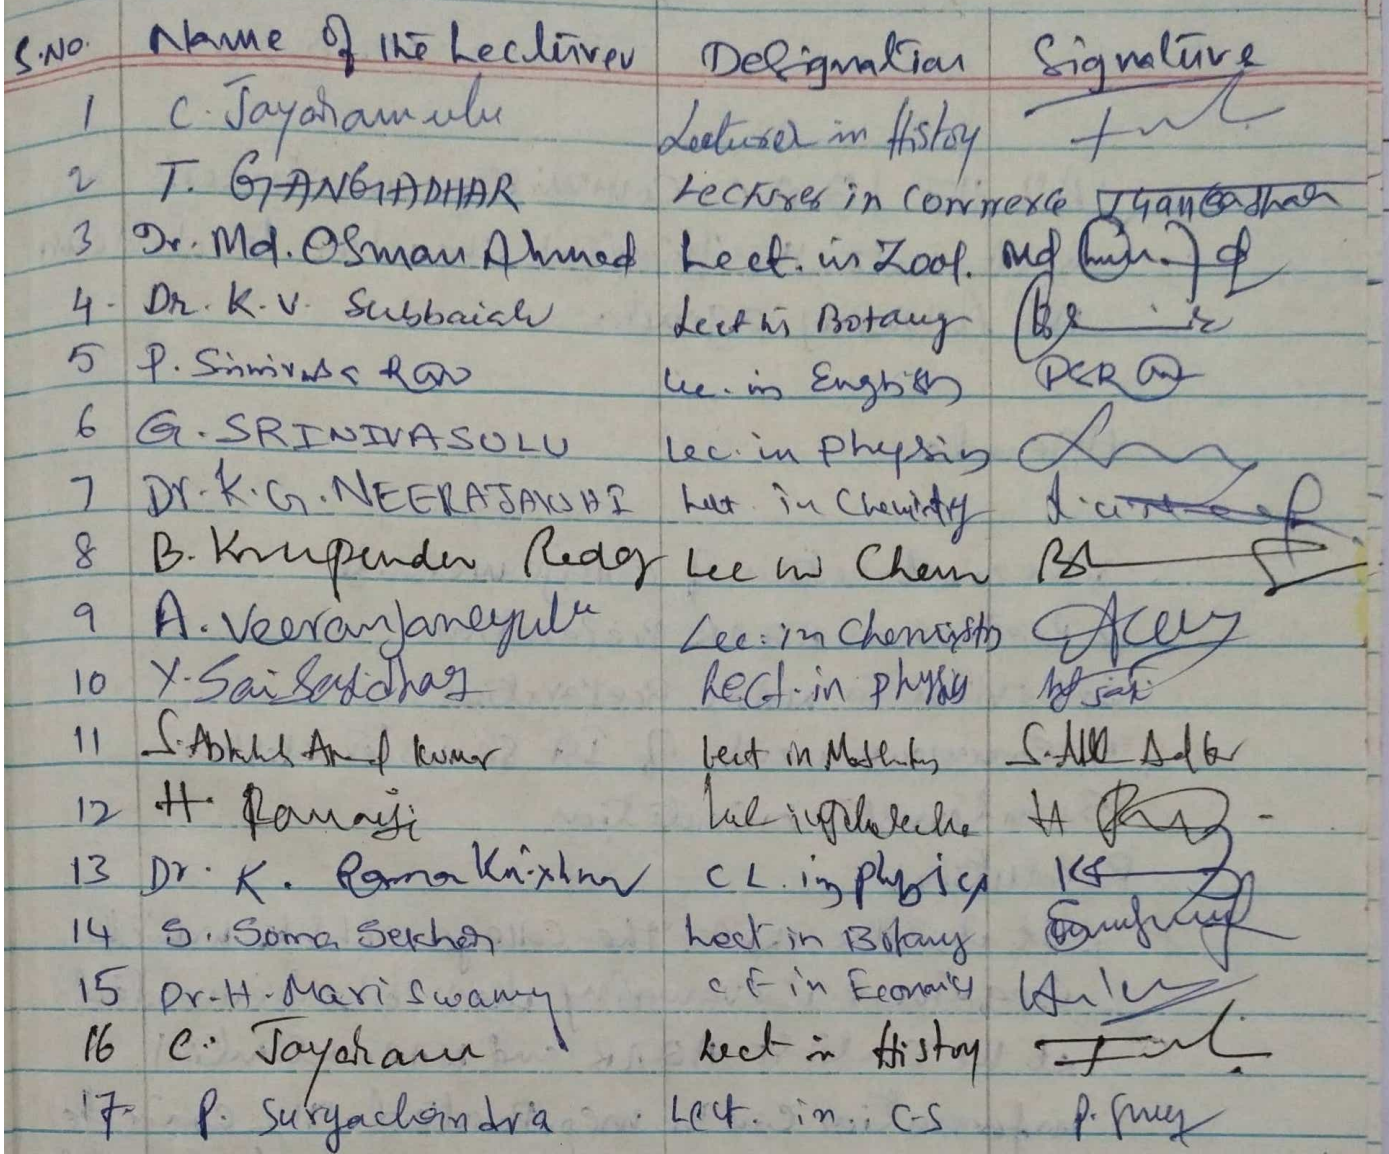 S.No. Name of the Lecturer Designation Signature
1 C. Jayaramulu Lecturer in History
2 T. GANGADHAR Lecturer in Commerce TGangadhar
3 Dr. Md. Osman Ahmed Lect. in Zool. Md
4. Dr. K. V. Subbaiah Lect in Botany
5 P. Srinivasa Rao Lec. in English PSRao
6 G. SRINIVASULU Lec. in Physics
7 Dr. K. G. NEERAJAKSHI Lect. in Chemistry
8 B. Krupender Reddy Lec in Chem
9 A. Veeranjaneyulu Lec. in Chemistry
10 Y. Sai Sasidhar Lect. in Physics
11 S. Kumar Lect in S.
12 H. Ramaji H
13 Dr. K. Rama Krishna C L. in Physics
14 S. Soma Sekhar Lect. in Botany
15 Dr. H. Mari Swamy in Economics
16 C. Jayaram Lect in History
17 P. Suryachandra Lect. in. CS P.